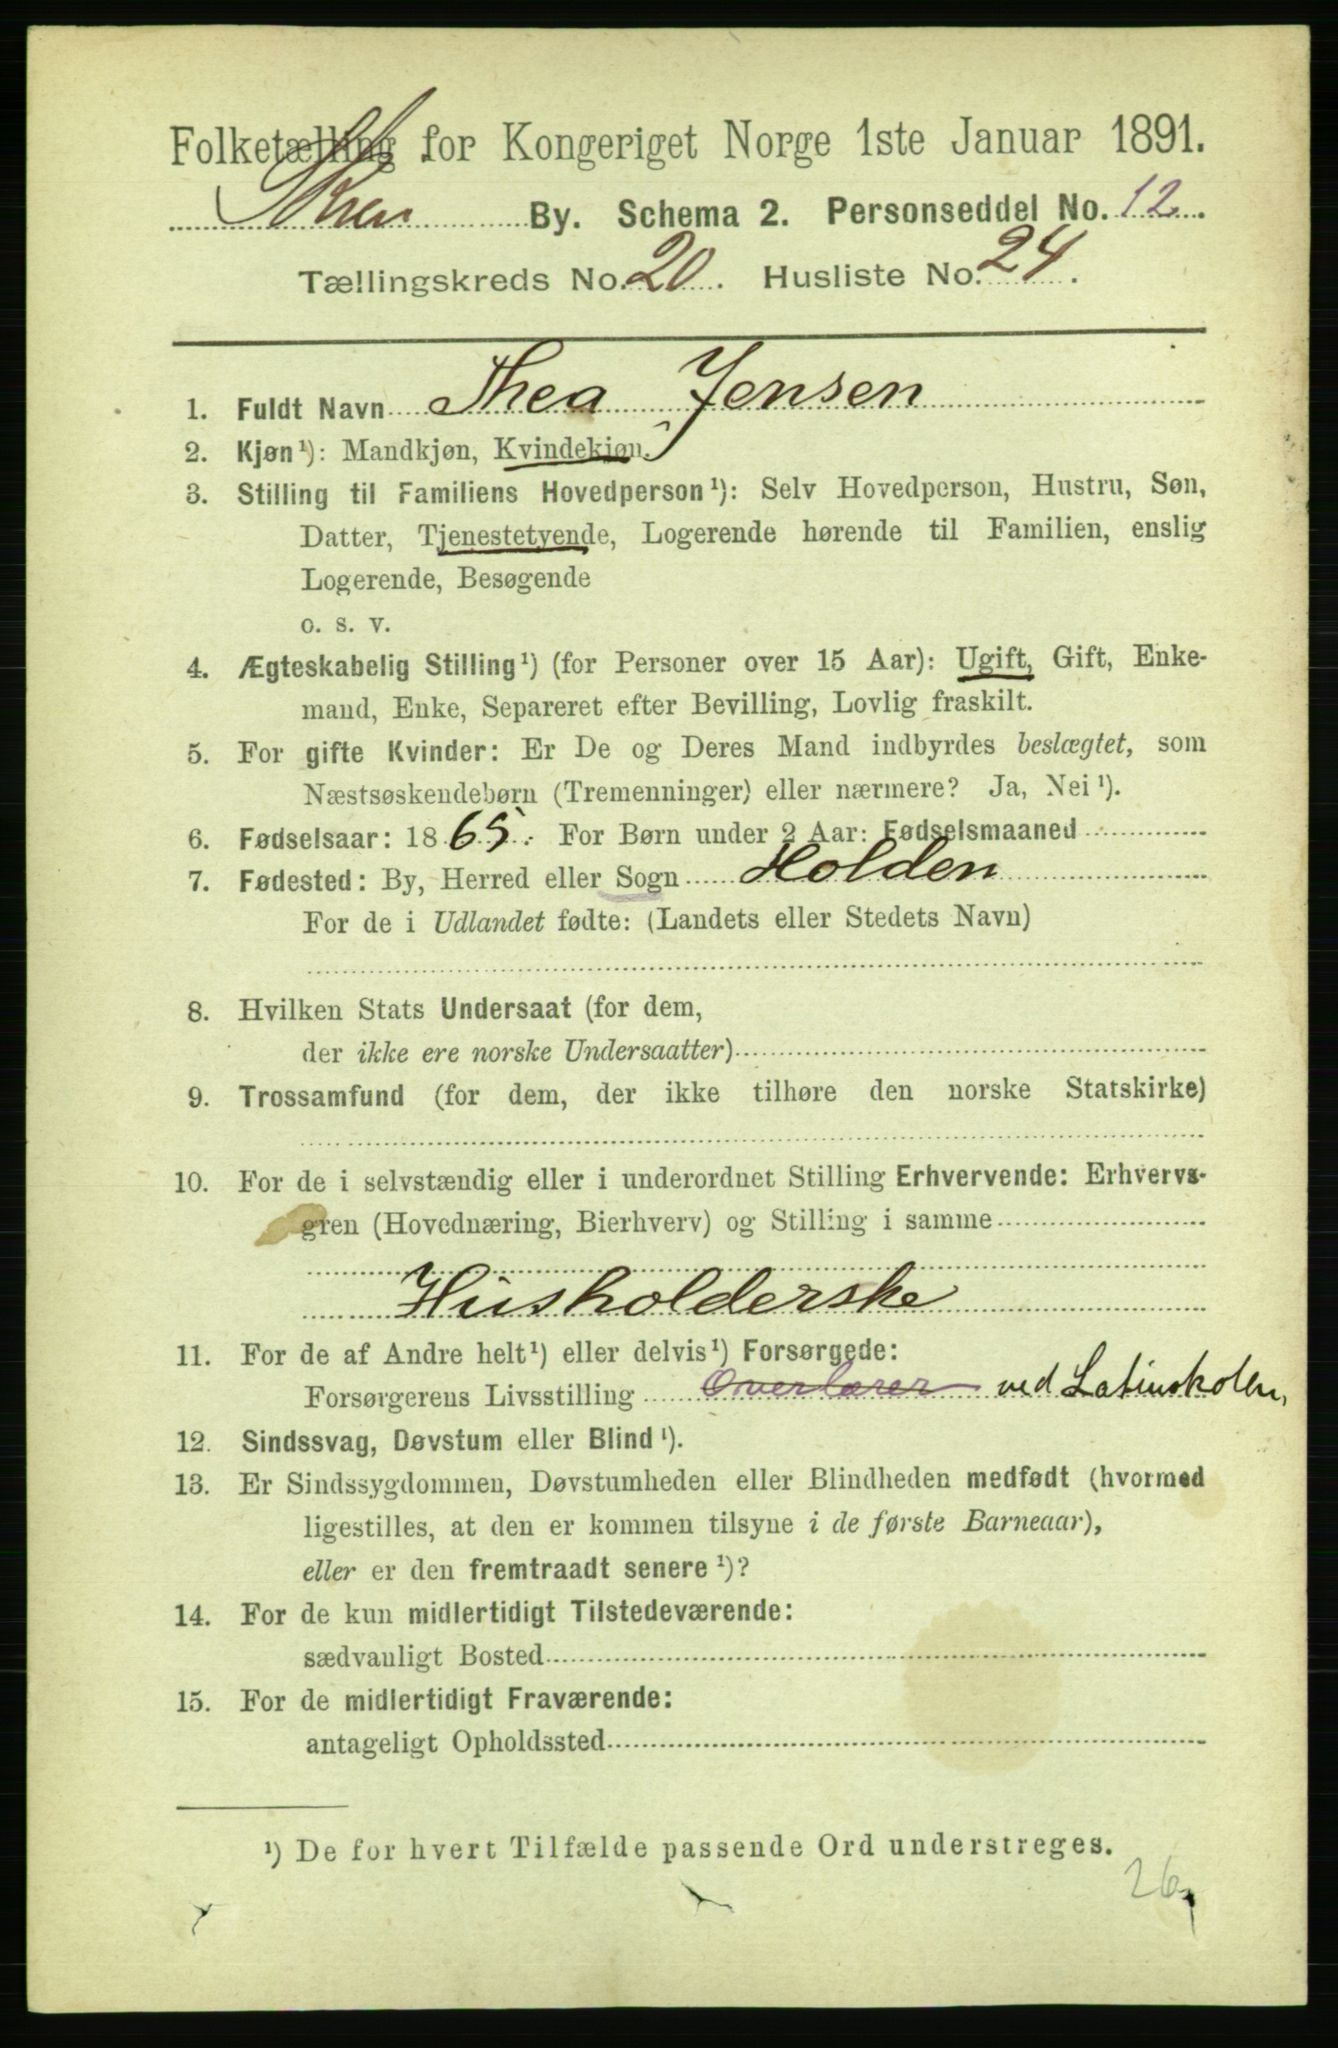 Folketælling for Kongeriget Norge 1ste Januar 1891.
Skien By. Schema 2. Personseddel No. 12.
Tællingskreds No. 20. Husliste No. 24.
1. Fuldt Navn Thea Jensen
2. Kjøn¹): Mandkjøn, Kvindekjøn.
3. Stilling til Familiens Hovedperson¹): Selv Hovedperson, Hustru, Søn,
Datter, Tjenestetyende, Logerende hørende til Familien, enslig
Logerende, Besøgende
o. s. v.
4. Ægteskabelig Stilling¹) (for Personer over 15 Aar): Ugift, Gift, Enke-
mand, Enke, Separeret efter Bevilling, Lovlig fraskilt.
5. For gifte Kvinder: Er De og Deres Mand indbyrdes beslægtet, som
Næstsøskendebørn (Tremenninger) eller nærmere? Ja, Nei¹).
6. Fødselsaar: 1865. For Børn under 2 Aar: Fødselsmaaned
7. Fødested: By, Herred eller Sogn Holden
For de i Udlandet fødte: (Landets eller Stedets Navn)
8. Hvilken Stats Undersaat (for dem,
der ikke ere norske Undersaatter)
9. Trossamfund (for dem, der ikke tilhøre den norske Statskirke)
10. For de i selvstændig eller i underordnet Stilling Erhvervende: Erhvervs-
gren (Hovednæring, Bierhverv) og Stilling i samme
Husholderske
11. For de af Andre helt¹) eller delvis¹) Forsørgede:
Forsørgerens Livsstilling Overlærer ved Latinskolen,
12. Sindssvag, Døvstum eller Blind¹).
13. Er Sindssygdommen, Døvstumheden eller Blindheden medfødt (hvormed
ligestilles, at den er kommen tilsyne i de første Barneaar),
eller er den fremtraadt senere¹)?
14. For de kun midlertidigt Tilstedeværende:
sædvanligt Bosted
15. For de midlertidigt Fraværende:
antageligt Opholdssted
¹) De for hvert Tilfælde passende Ord understreges.
26